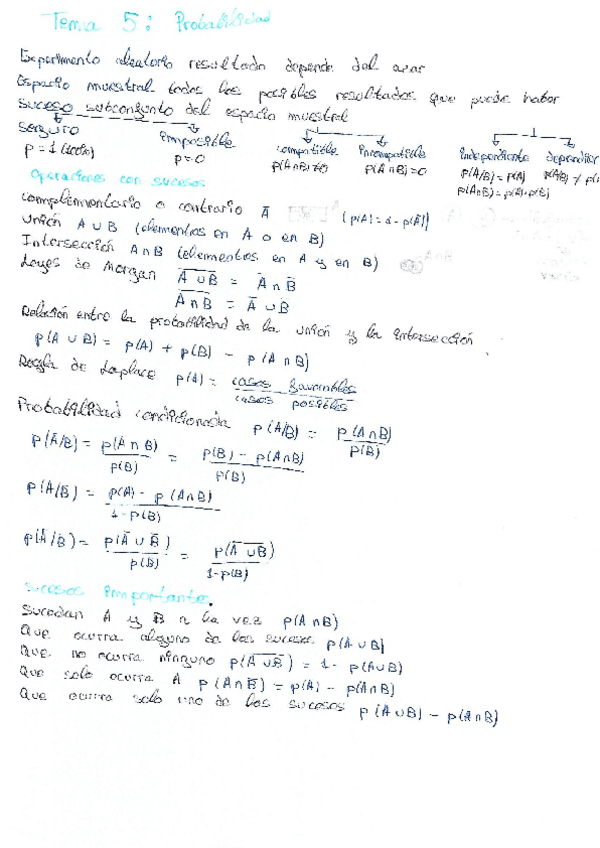 Tema 5: Probabilidad
Experimento aleatorio resultado depende del azar
Espacio muestral todos los posibles resultados que puede haber
Suceso subconjunto del espacio muestral
seguro p = 1 (100%)
Imposible p = 0
compatible p(A∩B)≠0
Incompatible p(A∩B)=0
Independiente p(A/B) = p(A) p(A∩B) = p(A)·p(B)
dependien p(A/B) ≠ p(
Operaciones con sucesos
Complementario o contrario Ā (p(A)=1-p(Ā))
Unión A∪B (elementos en A o en B)
Intersección A∩B (elementos en A y en B) A∩B
Leyes de Morgan \overline{A∪B} = Ā∩B̄
\overline{A∩B} = Ā∪B̄
Relación entre la probabilidad de la unión y la intersección
p(A∪B) = p(A) + p(B) - p(A∩B)
Regla de Laplace p(A) = casos favorables / casos posibles
Probabilidad condicionada p(A/B) = p(A∩B) / p(B)
p(Ā/B) = p(Ā∩B) / p(B) = p(B) - p(A∩B) / p(B)
p(A/B̄) = p(A) - p(A∩B) / 1-p(B)
p(Ā/B̄) = p(Ā∪B̄) / p(B̄) = p(\overline{A∪B}) / 1-p(B)
Sucesos Importantes.
Sucedan A y B a la vez p(A∩B)
Que ocurra alguno de los sucesos p(A∪B)
Que no ocurra ninguno p(\overline{A∪B}) = 1- p(A∪B)
Que solo ocurra A p(A∩B̄) = p(A) - p(A∩B)
Que ocurra solo uno de los sucesos p(A∪B) - p(A∩B)